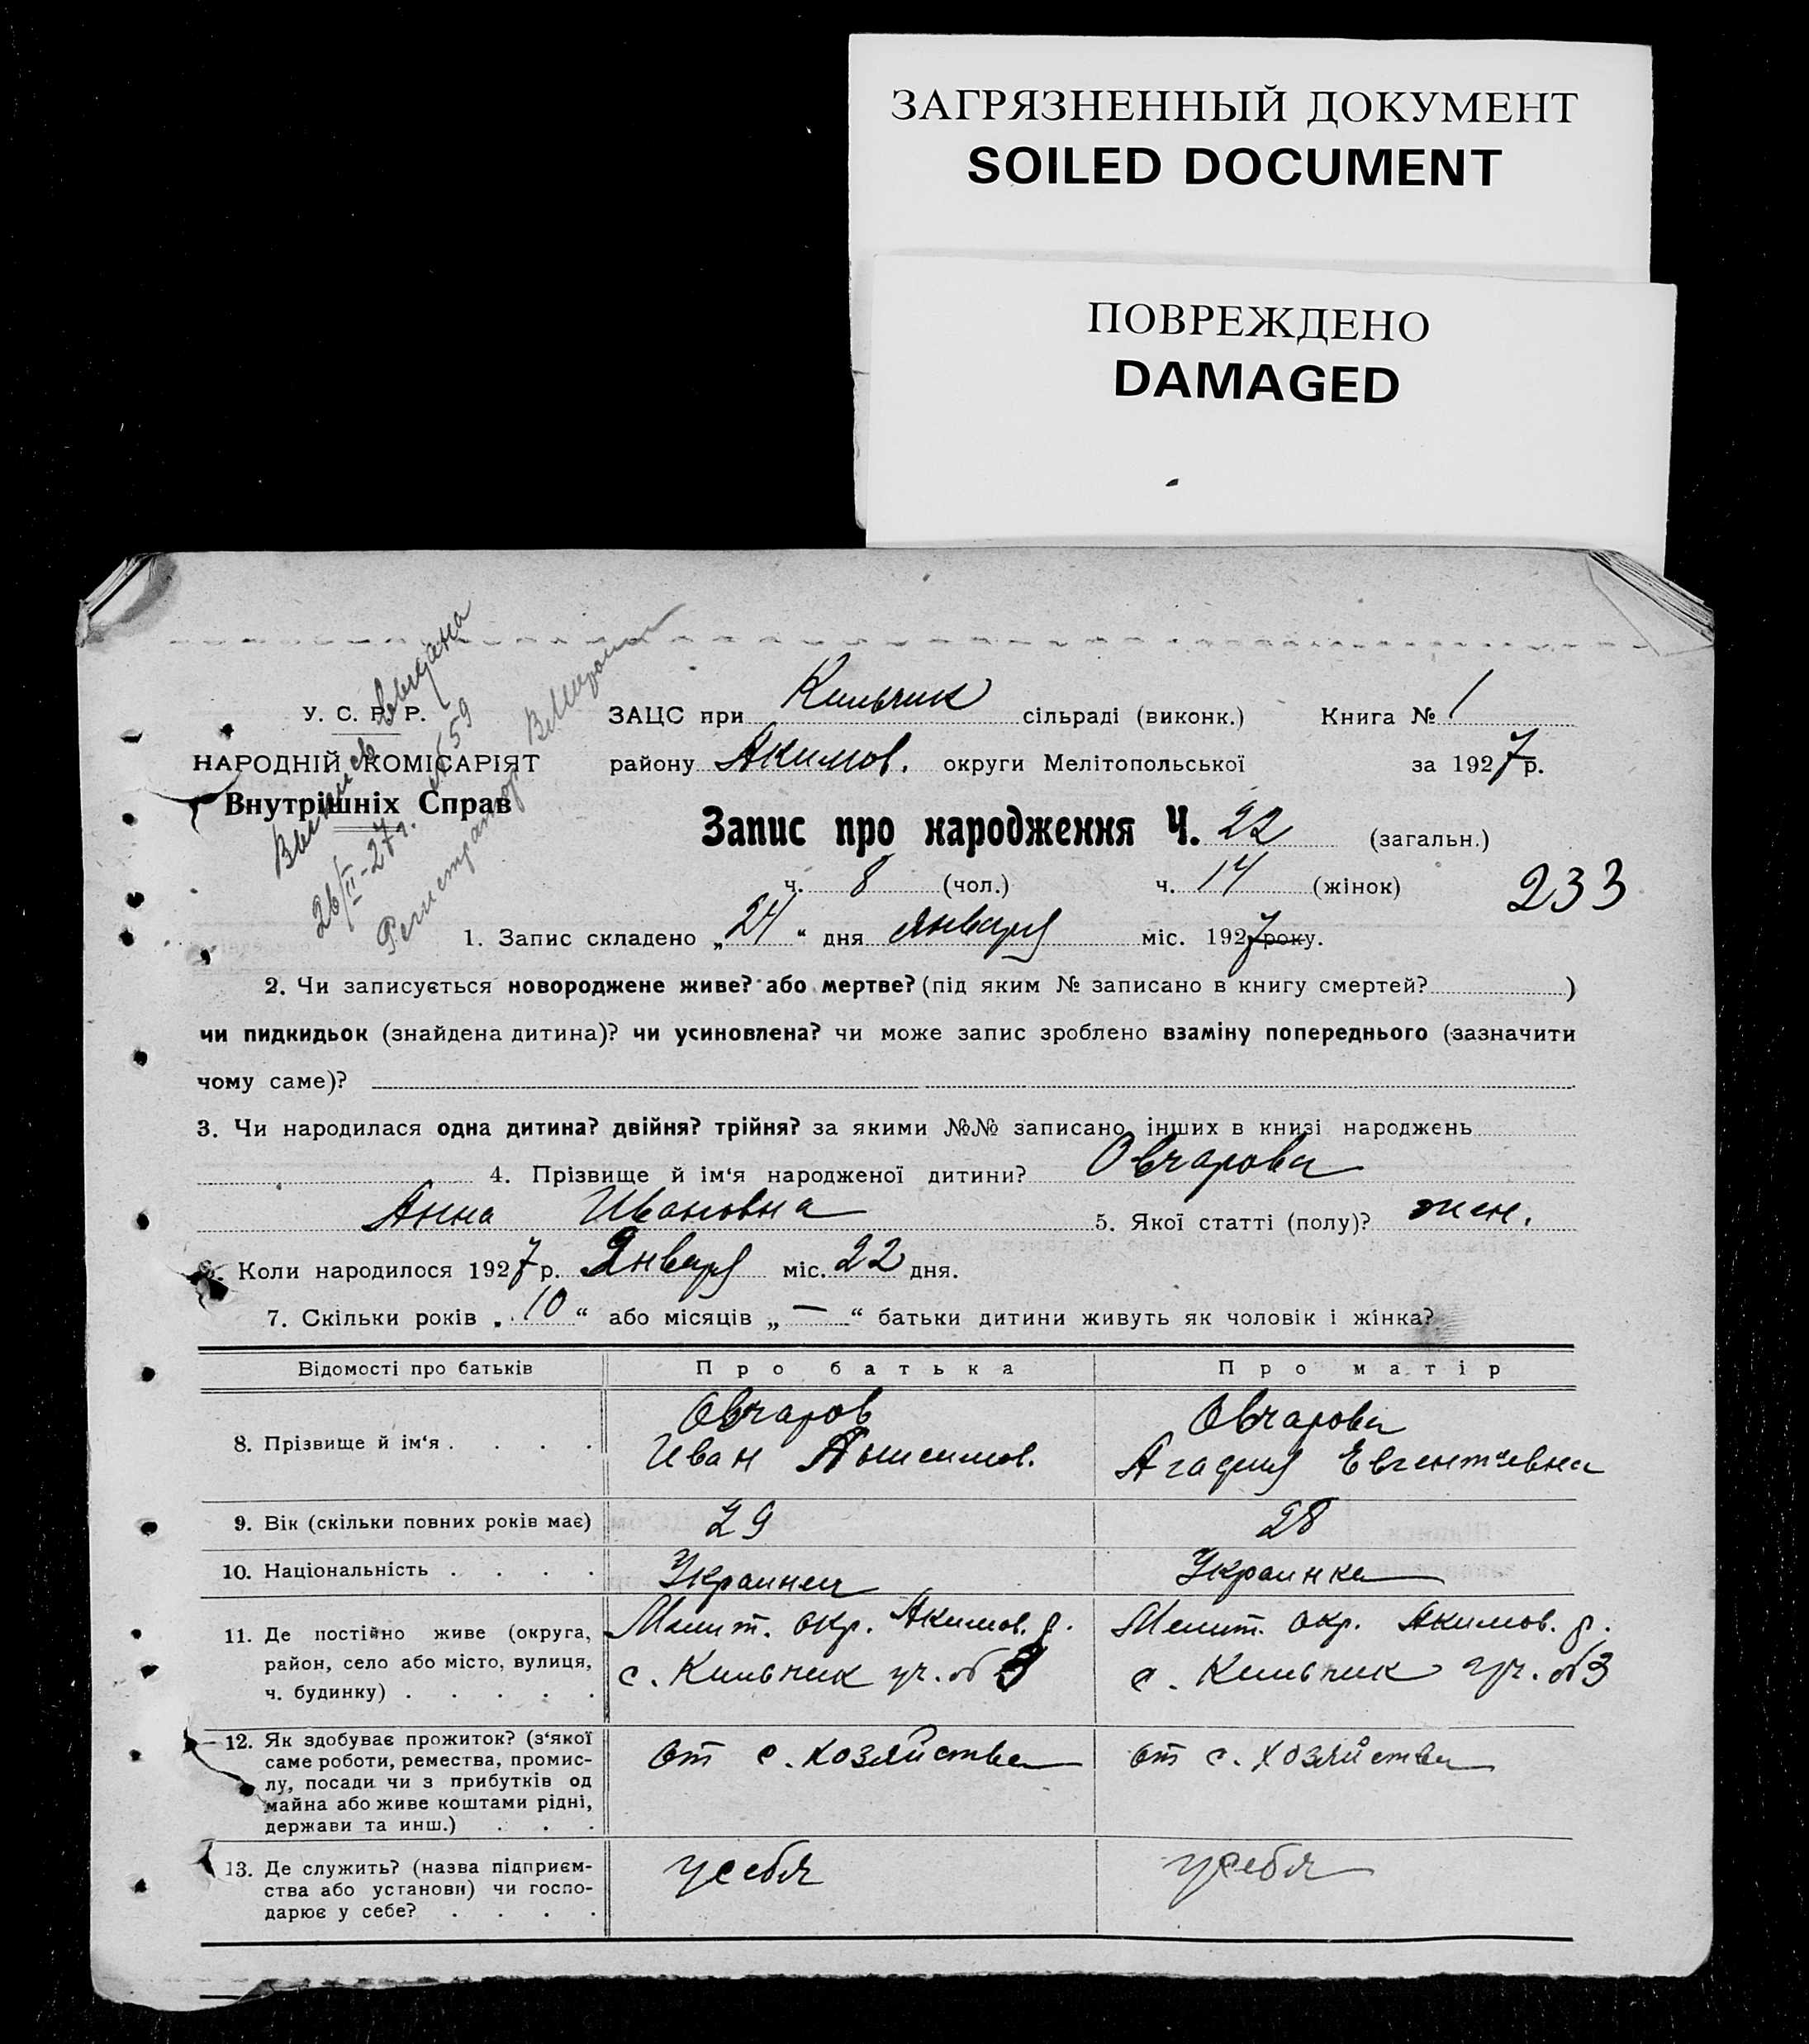 ЗАГРЯЗНЕННЫЙ ДОКУМЕНТ
SOILED DOCUMENT
ПОВРЕЖДЕНО
DAMAGED
Выпись выдана
26/II-27г. № 59
Регистратор
У. С. Р. Р.
НАРОДНІЙ КОМІСАРІЯТ
Внутрішніх Справ
ЗАЦС при Кильчик сільраді (виконк.) Книга № 1
району Акимов. округи Мелітопольської за 1927 р.
Запис про народження Ч. 22 (загальн.)
ч. 8 (чол.) ч. 14 (жінок) 233
1. Запис складено „24“ дня января міс. 1927 року.
2. Чи записується новороджене живе? або мертве? (під яким № записано в книгу смертей? )
чи пидкидьок (знайдена дитина)? чи усиновлена? чи може запис зроблено взаміну попереднього (зазначити
чому саме)?
3. Чи народилася одна дитина? двійня? трійня? за якими №№ записано інших в книзі народжень
4. Прізвище й ім‘я народженої дитини? Овчарова
Анна Ивановна 5. Якої статті (полу)? жен.
6. Коли народилося 1927 р. Января міс. 22 дня.
7. Скільки років „10“ або місяців „—“ батьки дитини живуть як чоловік і жінка?
Відомості про батьків Про батька Про матір
8. Прізвище й ім‘я . . . .
Овчаров
Иван
Овчарова
Агафия
9. Вік (скільки повних років має) 29 28
10. Національність . . . . Украинец Украинка
11. Де постійно живе (округа,
район, село або місто, вулиця,
ч. будинку) . . . . .
Мелит. окр. Акимов. р.
с. Кильчик уч. №3
Мелит. окр. Акимов. р.
с. Кильчик уч. №3
12. Як здобуває прожиток? (з‘якої
саме роботи, ремества, промис-
лу, посади чи з прибутків од
майна або живе коштами рідні,
держави та инш.) . . .
от с. хозяйства
от с. хозяйства
13. Де служить? (назва підприєм-
ства або установи) чи госпо-
дарює у себе? . . . .
у себя
у себя